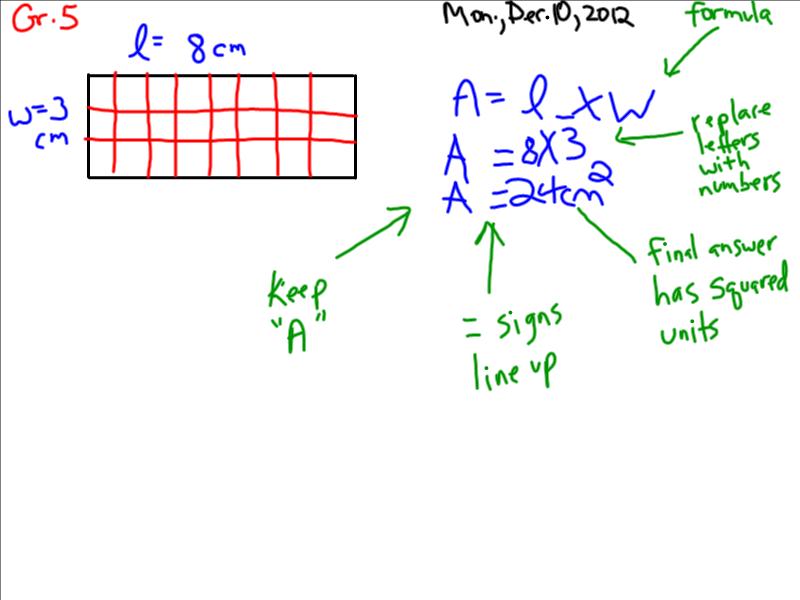 Gr.5
Mon., Dec. 10, 2012
formula
l= 8 cm
w=3
cm
A= l x w
A =8x3
A =24cm²
replace
letters
with
numbers
Keep
"A"
= signs
line up
final answer
has squared
units